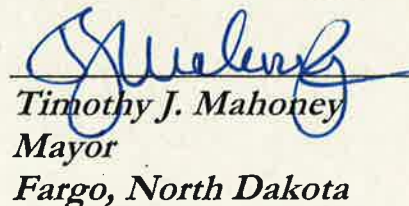 Timothy J. Mahoney
Mayor
Fargo, North Dakota